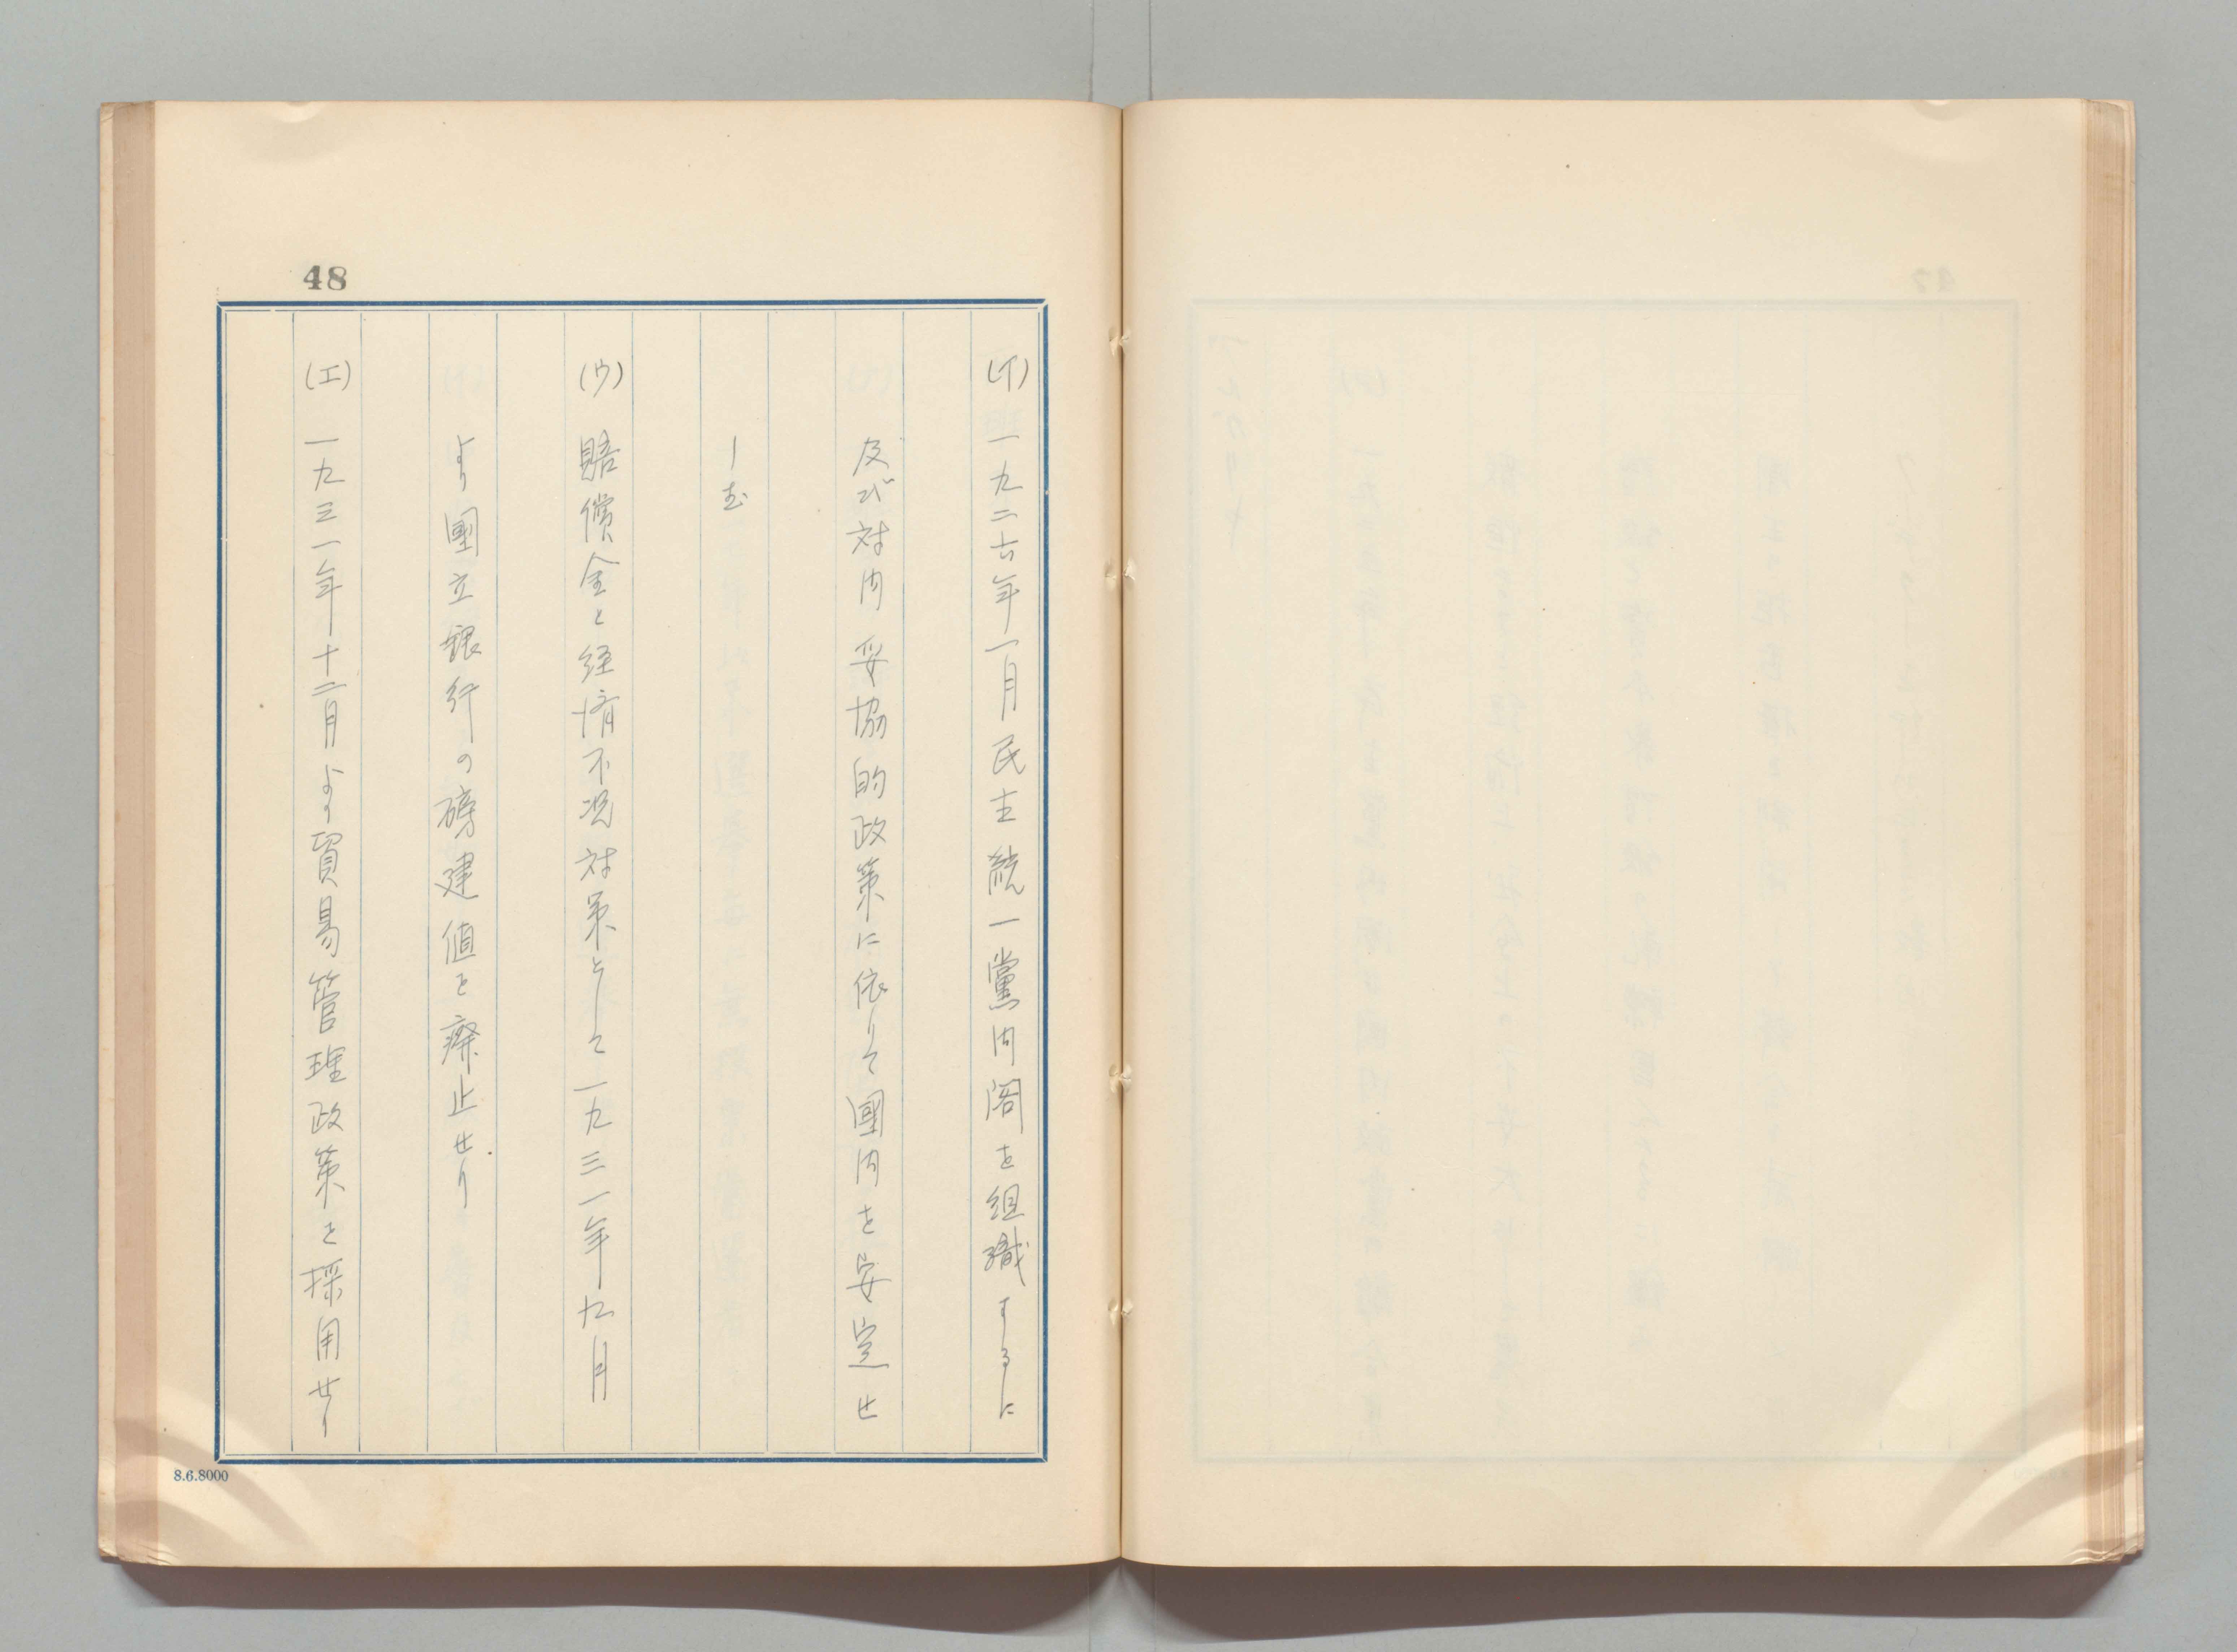 48
(イ) 一九二六年一月民主統一黨内閣を組織するに
及び対内妥協的政策に依りて國内を安定せ
しむ
(ウ) 賠償金と経済不況対策として一九三一年九月
より國立銀行の磅建値を廃止せり
(エ) 一九三一年十二月より貿易管理政策を採用せり
8.6.8000